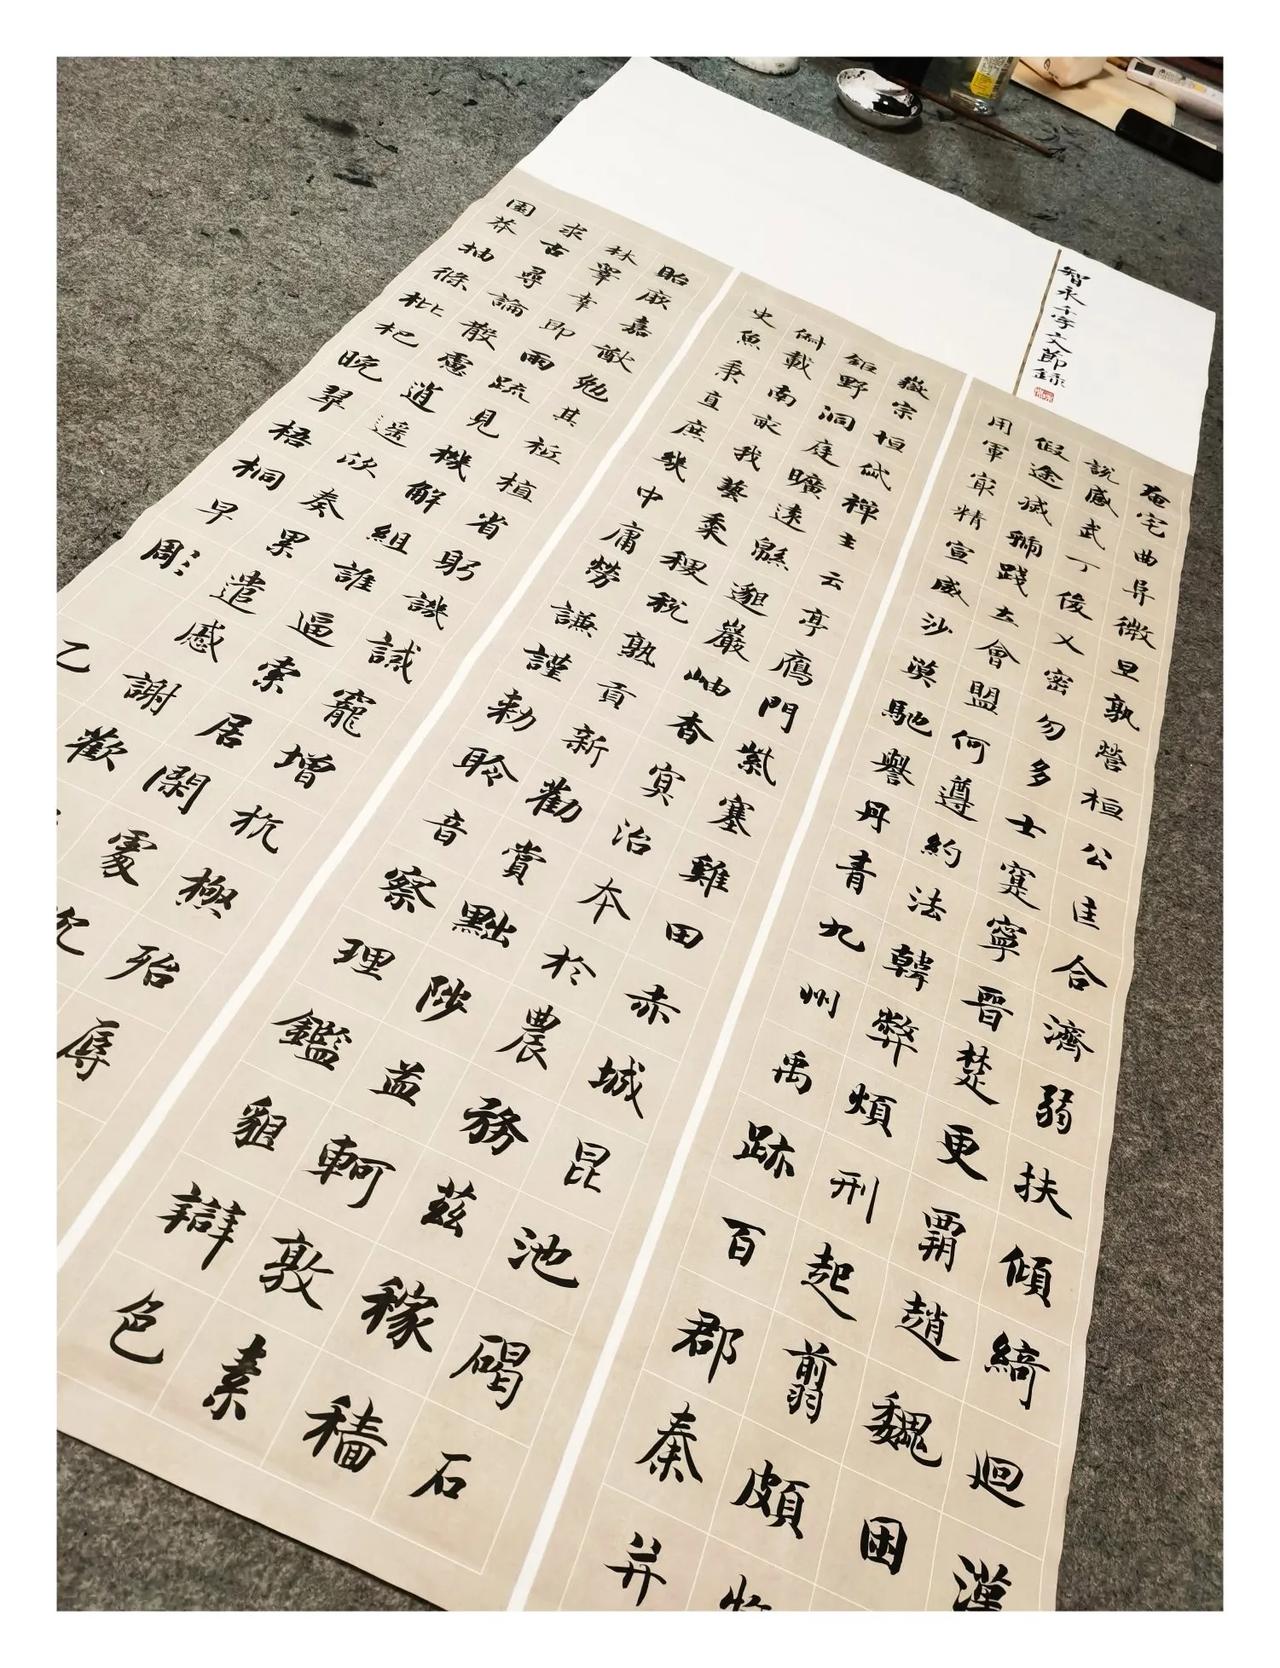 智永千字文節錄
奄宅曲阜微旦孰營桓公匡合濟弱扶傾綺迴漢
說感武丁俊乂密勿多士寔寧晉楚更霸趙魏困
假途滅虢踐土會盟何遵約法韓弊煩刑起翦頗牧
用軍最精宣威沙漠馳譽丹青九州禹跡百郡秦并
嶽宗恒岱禪主云亭鴈門紫塞雞田赤城昆池碣石
鉅野洞庭曠遠緜邈巖岫杳冥治本於農務茲稼穡
俶載南畝我藝黍稷稅熟貢新勸賞黜陟孟軻敦素
史魚秉直庶幾中庸勞謙謹勅聆音察理鑑貌辯色
貽厥嘉猷勉其祗植省躬譏誡寵增抗極殆辱
林睾幸即兩疏見機解組誰逼索居閑處沉
求古尋論散慮逍遙欣奏累遣慼謝歡
園莽抽條枇杷晚翠梧桐早凋